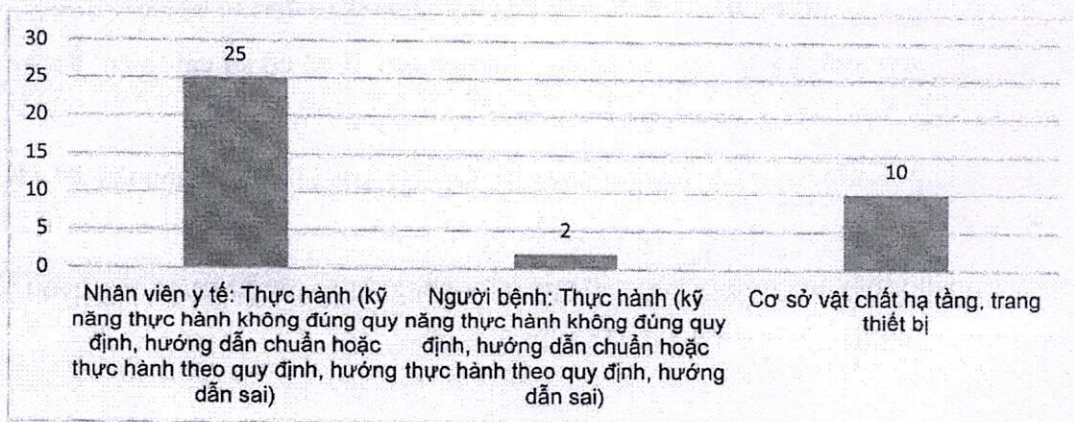 30
25
20
15
10
5
0
25
2
10
Nhân viên y tế: Thực hành (kỹ
năng thực hành không đúng quy
định, hướng dẫn chuẩn hoặc
thực hành theo quy định, hướng
dẫn sai)
Người bệnh: Thực hành (kỹ
năng thực hành không đúng quy
định, hướng dẫn chuẩn hoặc
thực hành theo quy định, hướng
dẫn sai)
Cơ sở vật chất hạ tầng, trang
thiết bị